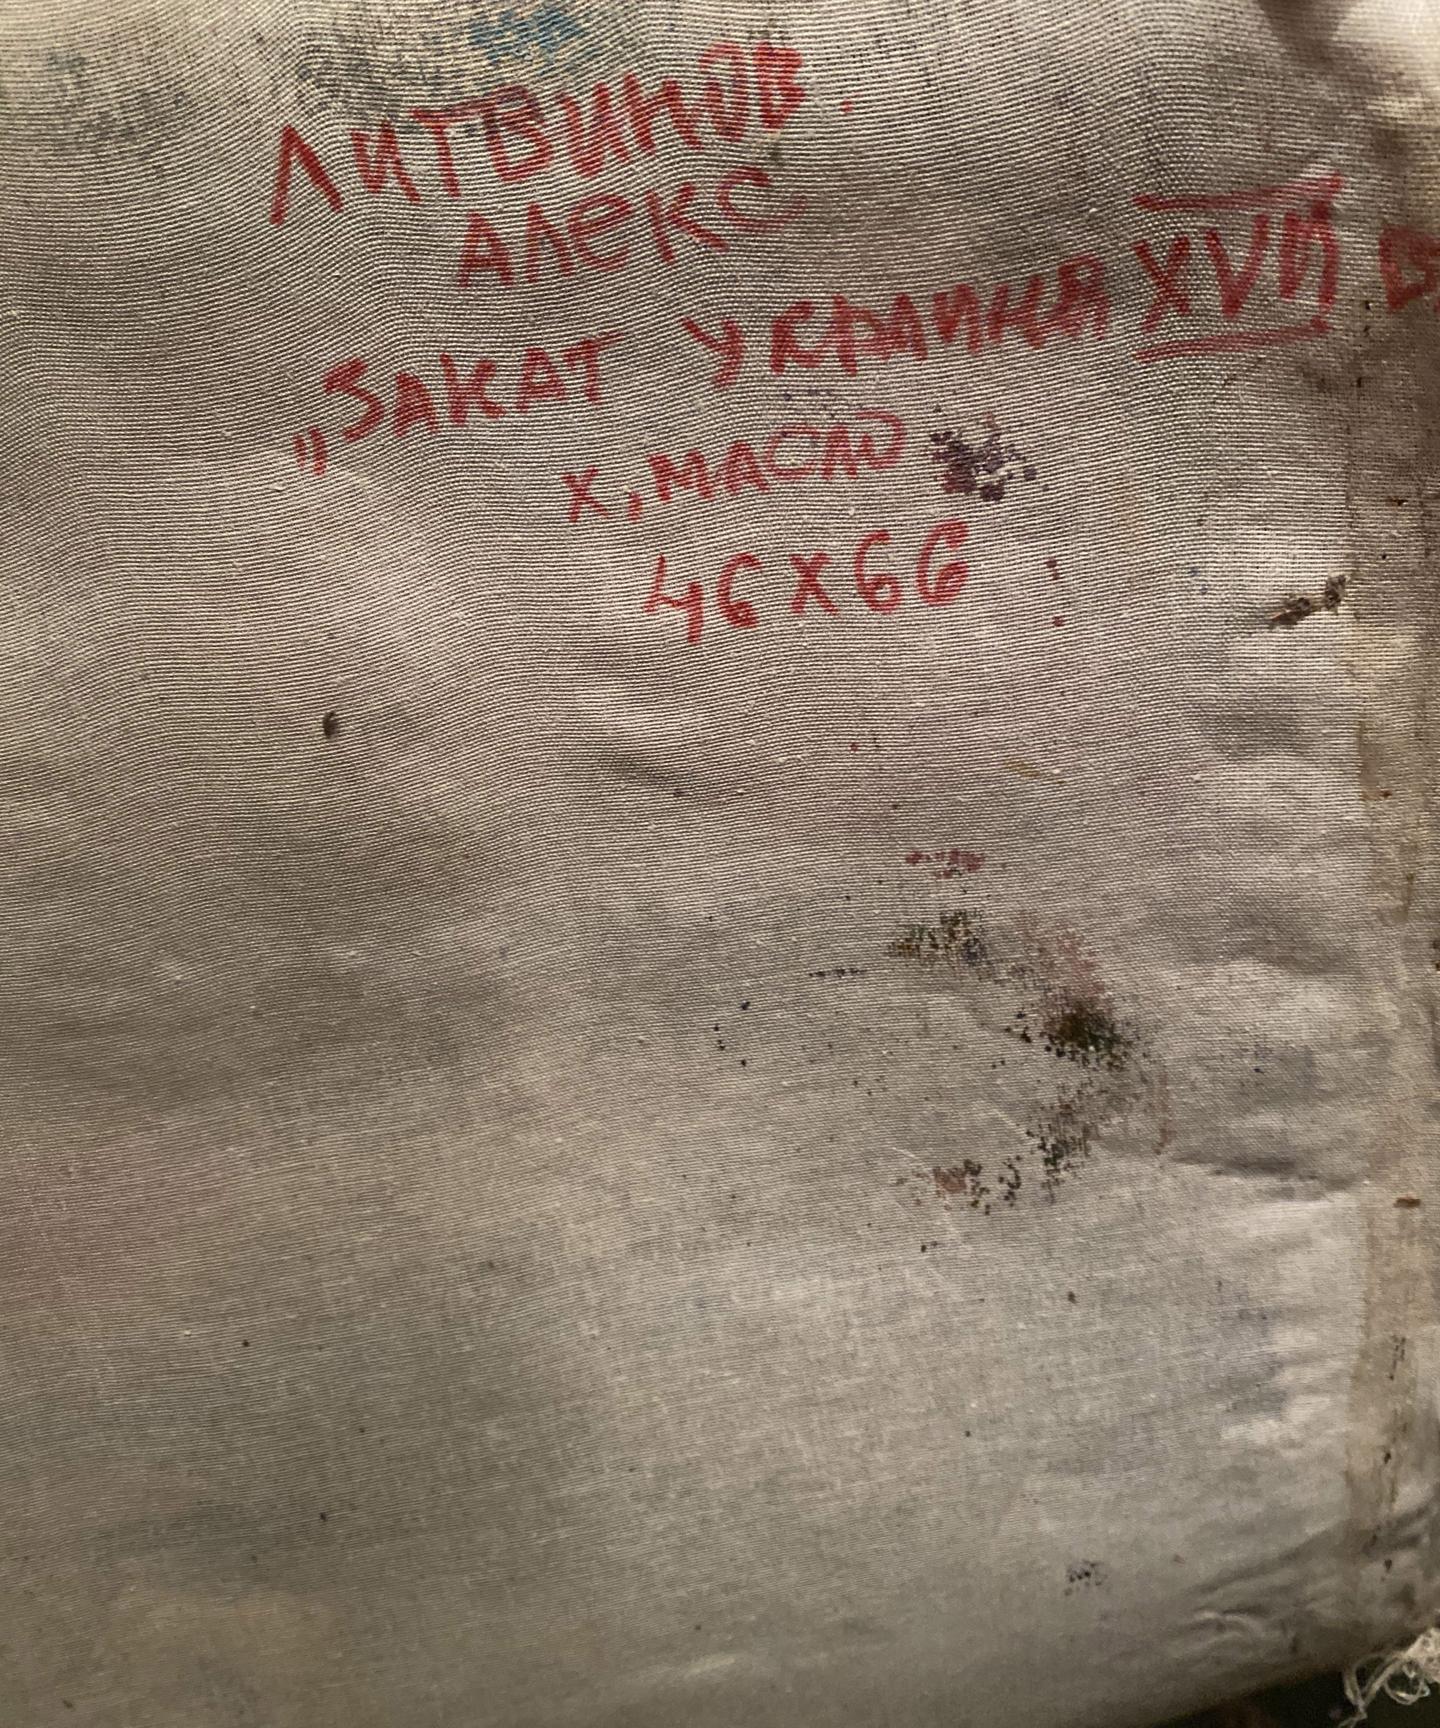 ЛИТВИНОВ.
АЛЕКС
„ЗАКАТ УКРАИНА XVII В
х, МАСЛО
46 х 66